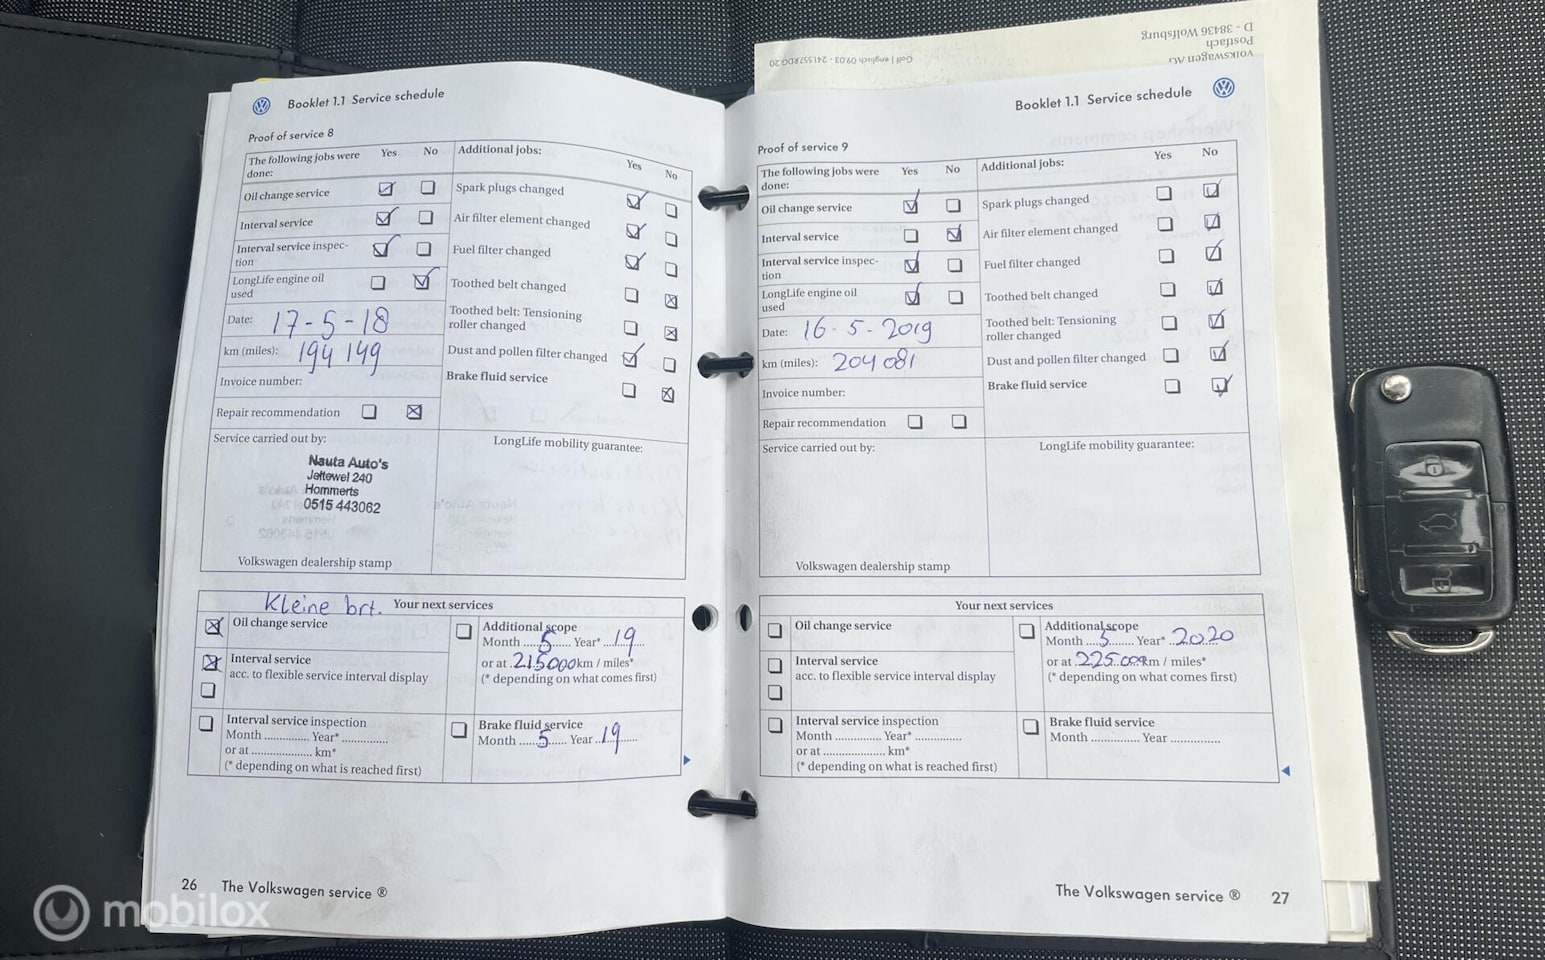 Golf | englisch 09.03 - 241.557.RDG.20
Volkswagen AG
Postfach
D - 38436 Wolfsburg
Booklet 1.1 Service schedule
Proof of service 8
The following jobs were done:
Yes No
Additional jobs:
Yes No
Oil change service
Interval service
Interval service inspec-
tion
LongLife engine oil
used
Date: 17-5-18
km (miles): 194 149
Invoice number:
Repair recommendation
Spark plugs changed
Air filter element changed
Fuel filter changed
Toothed belt changed
Toothed belt: Tensioning
roller changed
Dust and pollen filter changed
Brake fluid service
Service carried out by:
Nauta Auto's
Jeltewel 240
Hommerts
0515 443062
Volkswagen dealership stamp
LongLife mobility guarantee:
Kleine brt. Your next services
Oil change service
Interval service
acc. to flexible service interval display
Interval service inspection
Month ............... Year* ...............
or at .................... km*
(* depending on what is reached first)
Additional scope
Month ....5...... Year* ...19......
or at .215000km / miles*
(* depending on what comes first)
Brake fluid service
Month .....5...... Year ..19......
26 The Volkswagen service ®
Booklet 1.1 Service schedule
Proof of service 9
The following jobs were
done:
Yes No
Additional jobs:
Yes No
Oil change service
Interval service
Interval service inspec-
tion
LongLife engine oil
used
Date: 16-5-2019
km (miles): 204 081
Invoice number:
Repair recommendation
Spark plugs changed
Air filter element changed
Fuel filter changed
Toothed belt changed
Toothed belt: Tensioning
roller changed
Dust and pollen filter changed
Brake fluid service
Service carried out by:
Volkswagen dealership stamp
LongLife mobility guarantee:
Your next services
Oil change service
Interval service
acc. to flexible service interval display
Interval service inspection
Month ............... Year* ...............
or at .................... km*
(* depending on what is reached first)
Additional scope
Month ....5........ Year* ..2020
or at .225.000km / miles*
(* depending on what comes first)
Brake fluid service
Month ................ Year ................
The Volkswagen service ® 27
mobilox